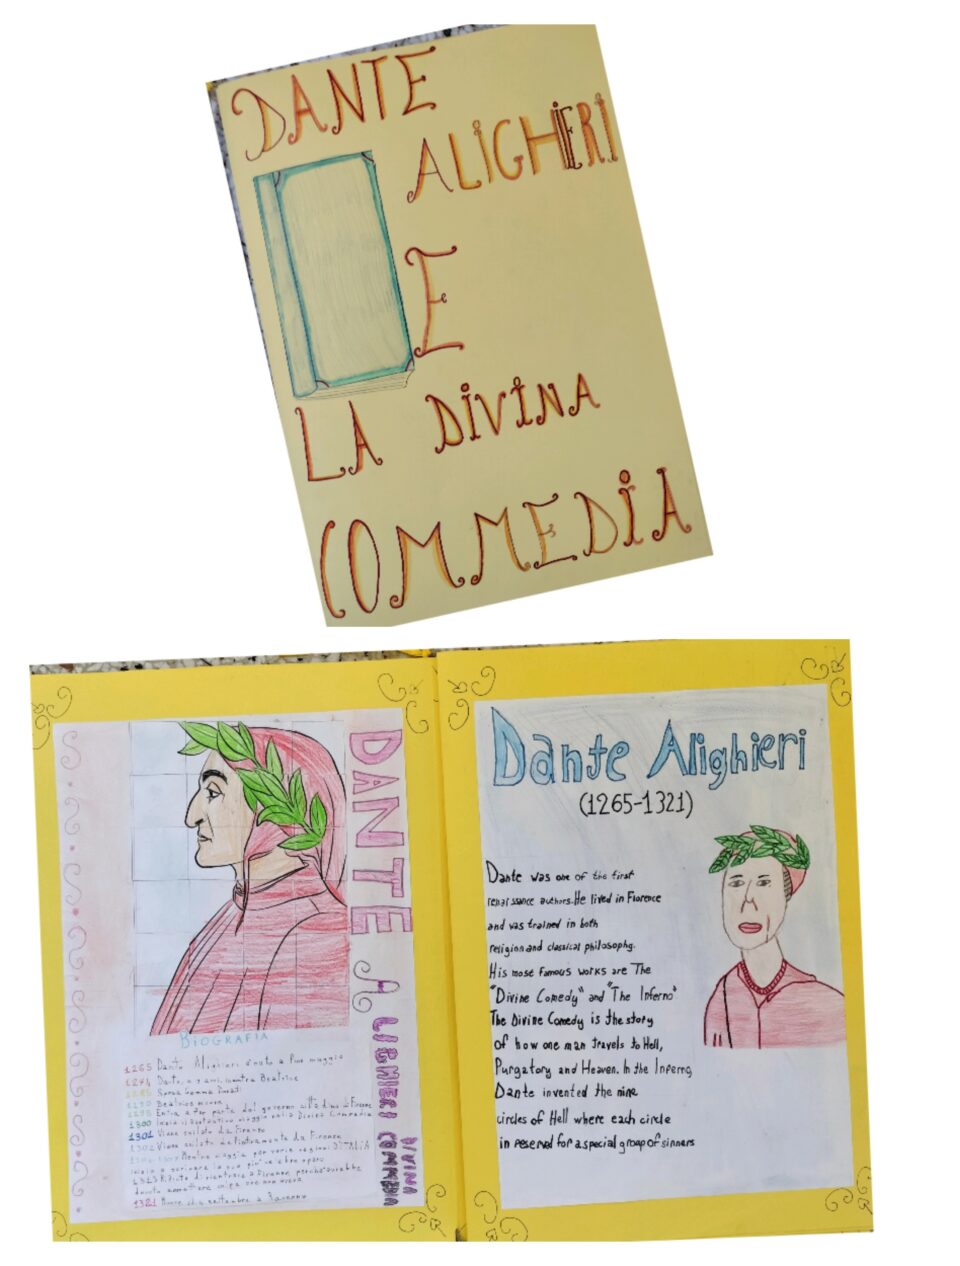 DANTE
ALIGHIERI
E
LA DIVINA
COMMEDIA
DANTE ALIGHIERI
DIVINA
COMMEDIA
BIOGRAFIA
1265 Dante Alighieri è nato a fine maggio
1274 Dante, a 9 anni, incontra Beatrice
1285 Sposa Gemma Donati
1290 Beatrice muore
1295 Entra a far parte del governo città di Firenze
1300 Inizia il viaggio nella Divina Commedia
1301 Viene esiliato da Firenze
1302 Viene esiliato da Firenze
viaggia per varie regioni D'ITALIA
inizia a scrivere le sue opere
1315 di rientrare a Firenze perché avrebbe
dovuto ammettere
1321 Muore settembre a Ravenna
Dante Alighieri
(1265-1321)
Dante was one of the first
renaissance authors. He lived in Florence
and was trained in both
religion and classical philosophy.
His most famous works are The
"Divine Comedy" and "The Inferno"
The Divine Comedy is the story
of how one man travels to Hell,
Purgatory and Heaven. In the Inferno,
Dante invented the nine
circles of Hell where each circle
in reserved for a special group of sinners